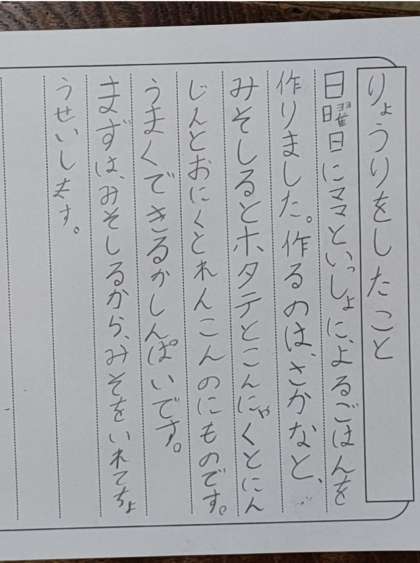 りょうりをしたこと
日曜日にママといっしょに、よるごはんを
作りました。作るのは、さかなと、
みそしるとホタテとこんにゃくとにん
じんとおにくとれんこんのにものです。
うまくできるかしんぱいです。
まずは、みそしるから、みそをいれてちょ
うせいします。